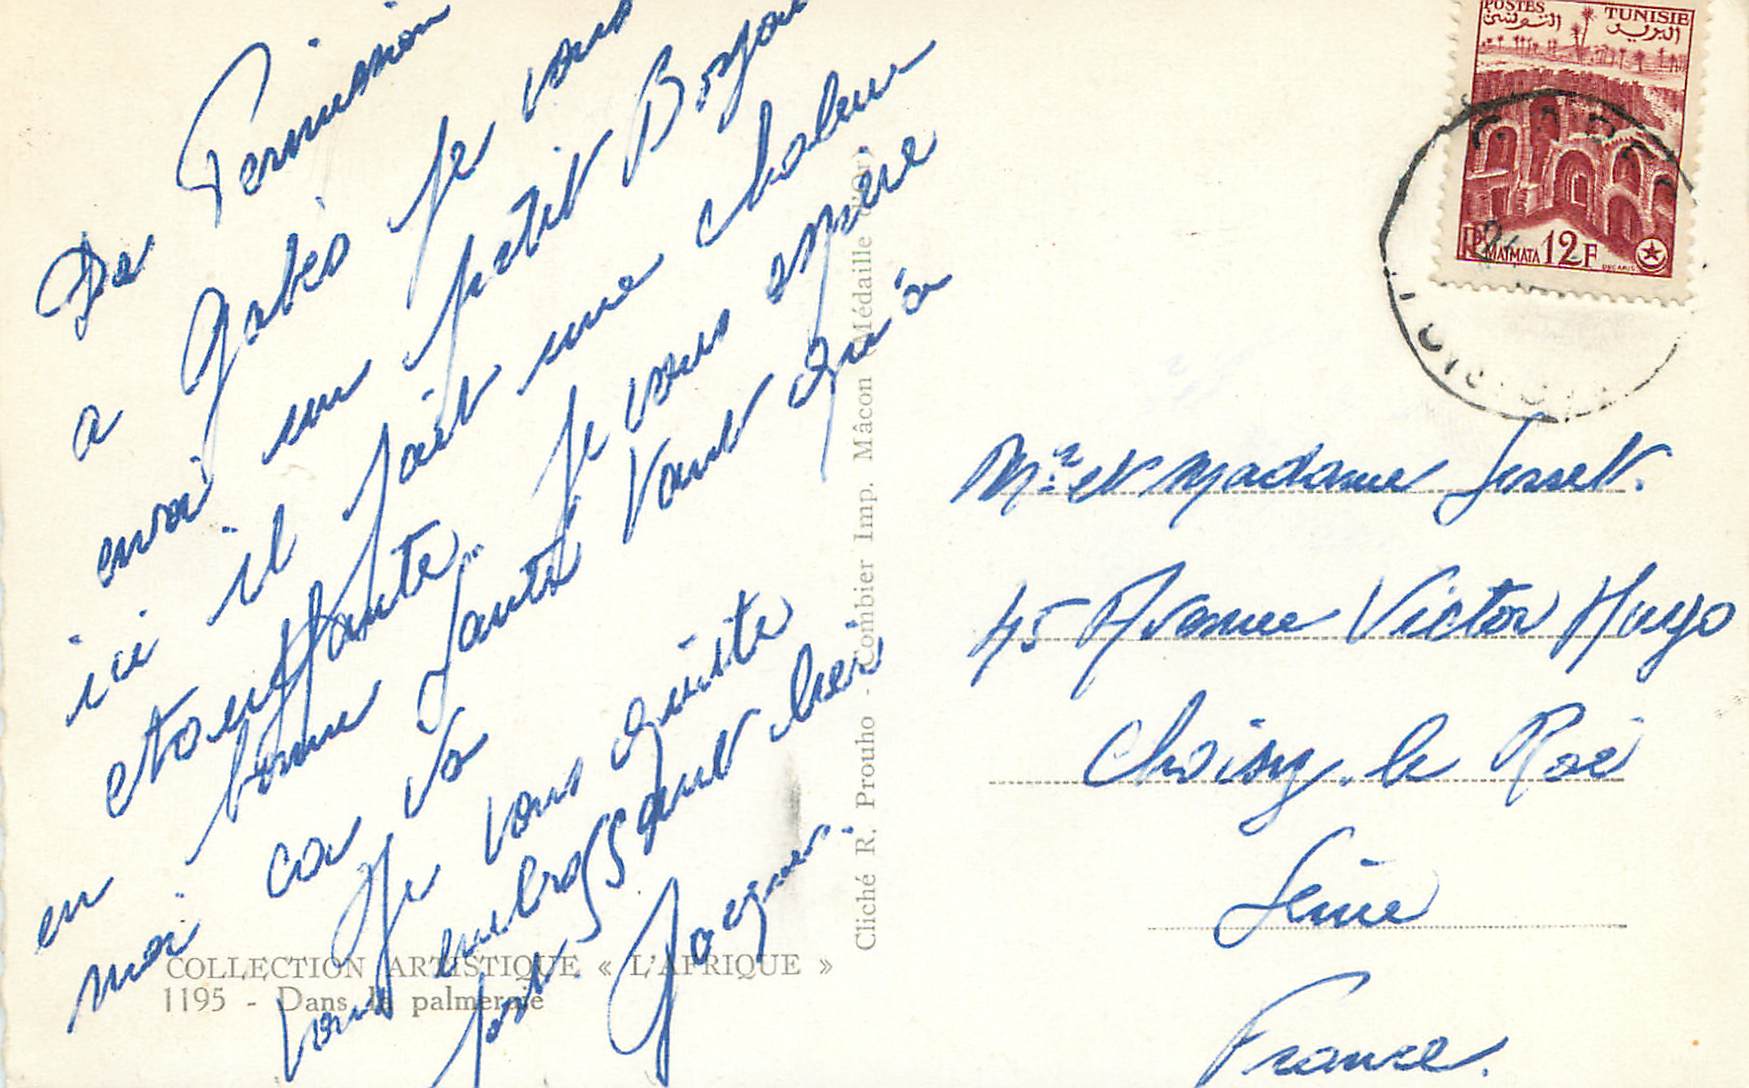 De Permission
a Gabès je vous
envoi un petit Bonjou
ici il fait une chaleur
etouffante.. Je vous espère
en bonne santé Quant qu'à
moi ca va
Je vous quitte
vous embrassant bien
fort. Jacques.
COLLECTION ARTISTIQUE « L'AFRIQUE »
1195 - Dans la palmeraie
Cliché R. Prouho - Combier Imp. Mâcon (Médaille d'Or)
POSTES TUNISIE
البريد التونسي
MATMATA 12F
Mr et Madame Josset.
45 Avenue Victor Hugo
Choisy. le Roi
Seine
France.